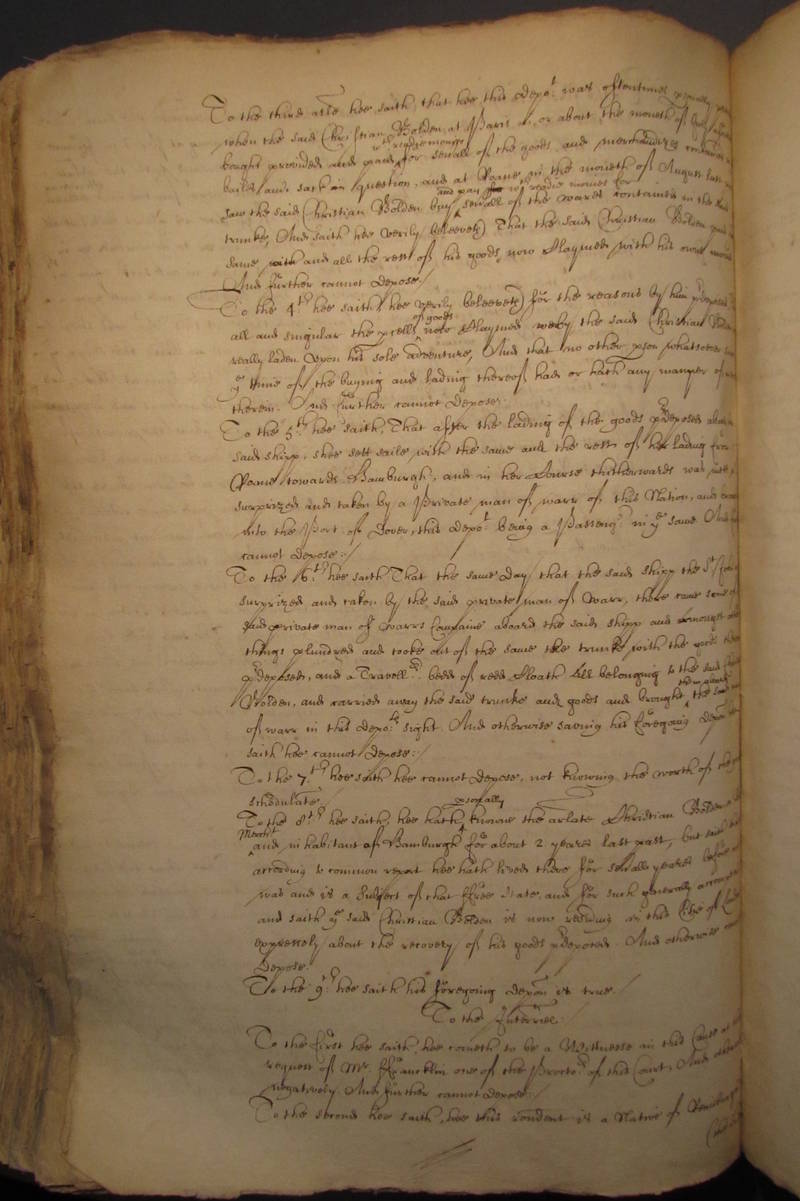 To the third arle hee saith, that hee this depot. was oftentimes psonally
when the said Christian Bolden at Paris in, or about the moneth of
with readie moneys
bought provided and paid for severall of the goods and merchandizes
bailes and sack in question, and at Roane in the moneth of August last
and pay wth readie monies for
saw the said Christian Bolden buy severall of the wares contained in the
trunke, And saith hee verily beleeveth That the said Christian Bolden paid
same with and all the rest of his goods now Claymed with his owne
And further cannot depose./
To the 4.th hee saith hee verily beleeveth for the reasons by him pdeposed
of goods
all and singular the pcells now Claymed were by the said Christian
really laden Upon his sole adventure, And that no other pson whatsoever
ye tyme of the buying and lading thereof had or hath any manner of
therein. And further cannot depose.
To the 5.th hee saith, That after the lading of the goods pdeposed aboard
said shipp, shee sett saile with the same and the rest of her lading from
Roane towards Hamburgh, and in her Course thitherwards was
surprized and taken by a Private man of warr of this Nation, and
into the Port of Dover, this depot. being a Passengr. in ye same And
cannot depose:/
To the 6.th hee saith That the same day that the said shipp the St.
surprized and taken by the said private man of warr, there came some of
said private man of warrs Companie aboard the said shipp and amongst other
things plundred and tooke out of the same the trunke with the goods
pdeposed, and a Travellr. bedd of redd Cloath All belonging to the said
Bolden, and carried away the said trunke and goods and brought the said
of warr in this depots. sight. And otherwise saving his foregoing
saith hee cannot depose:/
To the 7.th hee saith hee cannot depose, not knowing the worth of the
schedulate
psonally
To the 8th hee saith, hee hath knowne the arlate Christian Bolden
Mercht.
and inhabitant of Hamburgh for about 2 yeares last past, but saith
according to common report hee hath lived there for severall yeares before
was and is a Subject of that ffree State, and for such generally accounted
and saith ye said Christian Bolden is now residing in this City of
expressely about the recovery of his goods pdeposed. And otherwise
Depose.
To the 9.th hee saith his foregoing depon is true./
To the Interries.
To the first hee saith, hee cometh to be a Wittnesse in this Cause at
request of Mr. ffrancklin one of the Proctrs. of this Court, And
negatively. And further cannot depose:/
To the second hee saith, hee this rondent is a Native of